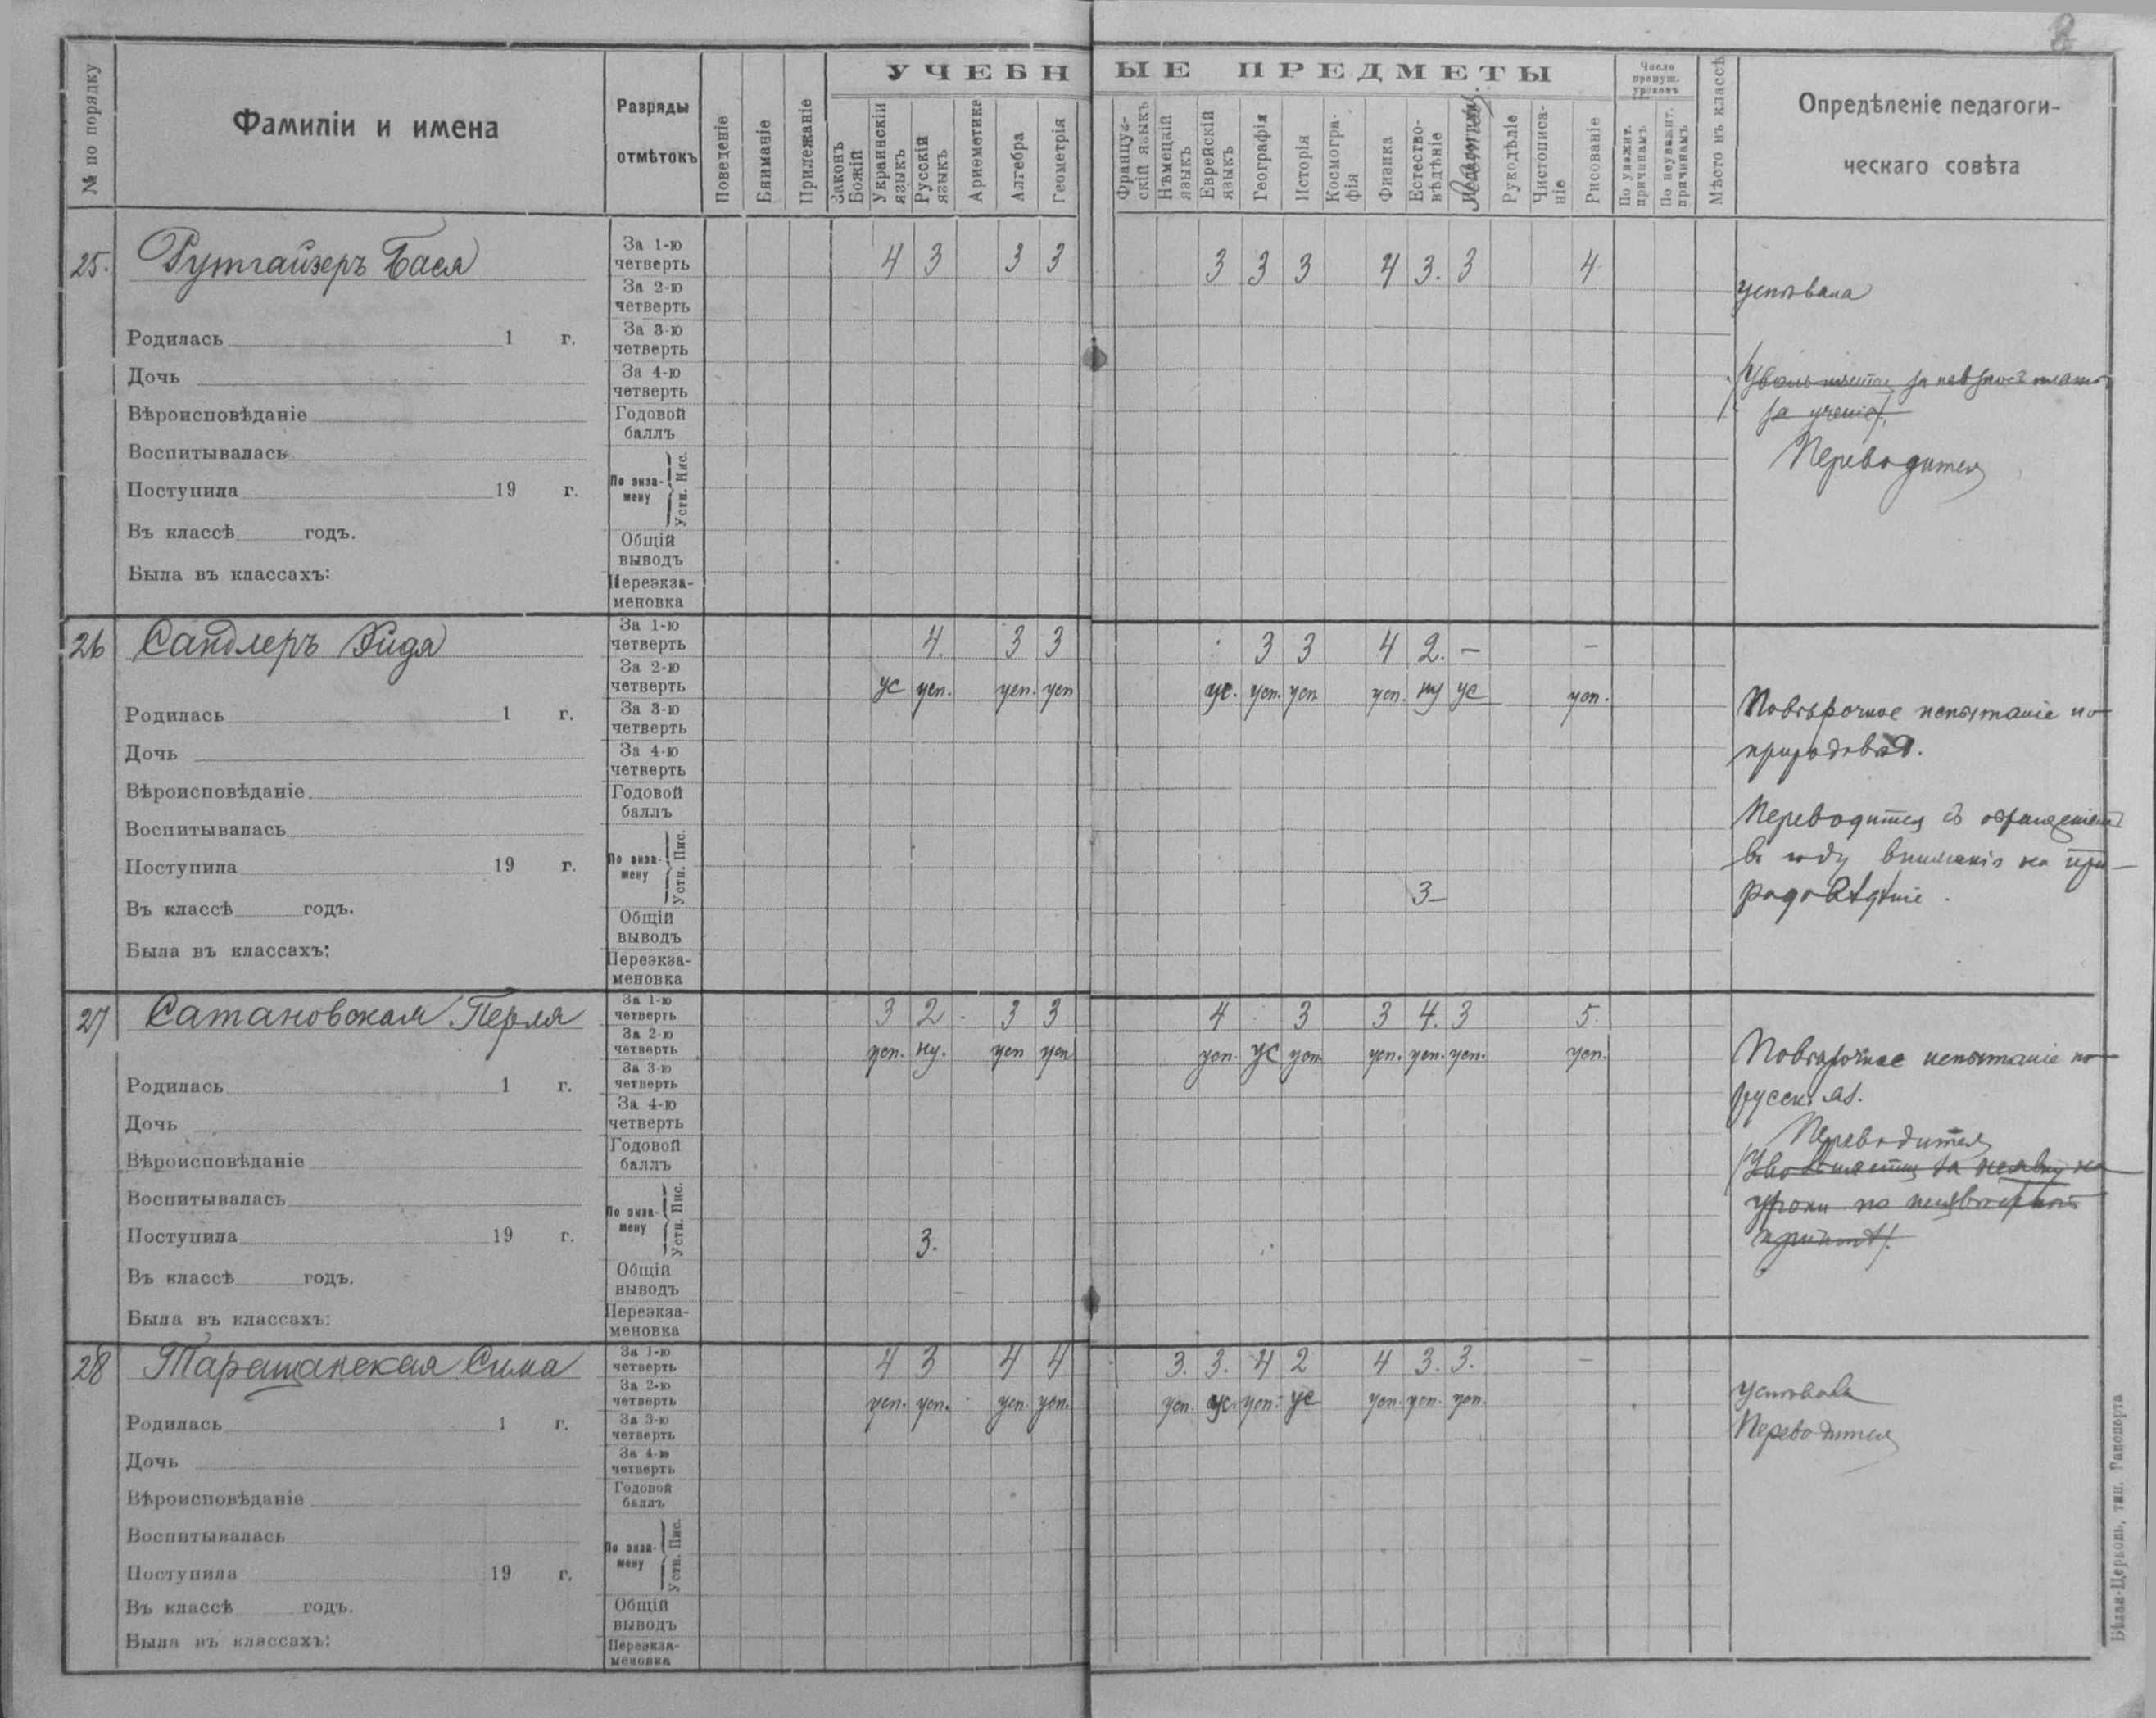 УЧЕБНЫЕ ПРЕДМЕТЫ
№ по порядку
Фамиліи и имена
Разряды
отмѣтокъ
Поведеніе
Вниманіе
Прилежаніе
Законъ Божій
Украинскій языкъ
Русскій языкъ
Ариѳметика
Алгебра
Геометрія
Француз-
скій языкъ
Нѣмецкій языкъ
Еврейскій языкъ
Географія
Исторія
Космогра-
фія
Физика
Естество-
вѣдѣніе
Рукодѣліе
Чистописа-
ніе
Рисованіе
Число пропущ. уроковъ
По уважит. причинамъ
По неуважит. причинамъ
Мѣсто въ классѣ
Опредѣленіе педагоги-
ческаго совѣта
25. Рутгайзеръ Бася
За 1-ю четверть 4 3 3 3 3 3 3 4 3. 3 4
За 2-ю четверть
За 3-ю четверть
За 4-ю четверть
Годовой баллъ
По экза-
мену
Устн. Пис.
Общій выводъ
Переэкза-
меновка
Родилась 1 г.
Дочь
Вѣроисповѣданіе
Воспитывалась
Поступила 19 г.
Въ классѣ годъ.
Была въ классахъ:
успѣвала
Увольняется за невзносъ платы
за ученіе.
Переводится
26 Сандлеръ Эйдя
За 1-ю четверть 4. 3 3 3 3 4 2. — —
За 2-ю четверть ус усп. усп. усп ус. усп. усп усп. ну ус усп.
За 3-ю четверть
За 4-ю четверть
Годовой баллъ
По экза-
мену
Устн. Пис.
3—
Общій выводъ
Переэкза-
меновка
Родилась 1 г.
Дочь
Вѣроисповѣданіе
Воспитывалась
Поступила 19 г.
Въ классѣ годъ.
Была въ классахъ:
Повѣрочное испытаніе по
природовѣд.
Переводится съ обращеніемъ
въ году вниманія на при-
родовѣдѣніе.
27 Сатановская Перля
За 1-ю четверть 3 2 3 3 4 3 3 4. 3 5.
За 2-ю четверть усп. ну. усп усп усп. ус усп усп. усп. усп. усп.
За 3-ю четверть
За 4-ю четверть
Годовой баллъ
По экза-
мену
Устн. Пис.
3.
Общій выводъ
Переэкза-
меновка
Родилась 1 г.
Дочь
Вѣроисповѣданіе
Воспитывалась
Поступила 19 г.
Въ классѣ годъ.
Была въ классахъ:
Повѣрочное испытаніе по
русск. яз.
Переводится
Увольняется за неявку на
уроки по неизвѣстной
причинѣ.
28 Таращанская Сима
За 1-ю четверть 4 3 4 4 3. 3. 4 2 4 3. 3. —
За 2-ю четверть усп. усп. усп. усп. усп. ус. усп. ус усп. усп. усп.
За 3-ю четверть
За 4-ю четверть
Годовой баллъ
По экза-
мену
Устн. Пис.
Общій выводъ
Переэкза-
меновка
Родилась 1 г.
Дочь
Вѣроисповѣданіе
Воспитывалась
Поступила 19 г.
Въ классѣ годъ.
Была въ классахъ:
успѣвала
Переводится
Бѣлая-Церковь, тип. Рапопорта